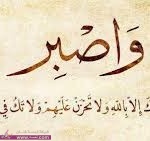 وَاصْبِر
كَ إِلاَّ بِاللهِ وَلاَ تَحْزَنْ عَلَيْهِمْ وَلاَ تَكُ فِي